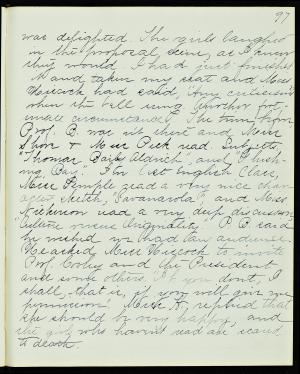 97
was delighted. The girls laughed
in the proposal scene, as I knew
they would. I had just finished
and taken my seat and Miss
had said "Any criticisms"
when the bell rung. Another for-
tunate circumstance. The
Prof. B. was not there and Miss
Short & Miss Peck read. Subjects,
"Thomas Bailey Aldrich", and
Bay." In 1st English Class,
Miss Temple read a very nice char-
acter sketch, "Savanarola", and Miss
Nickerson read a very deep discussion
Culture versus Originality." P. B. said
he wished we had an audience.
He asked Miss to invite
Prof. and the President
and some others. "If you don't, I
shall, that is, if you will give me
permission." Miss H. replied that
she should be very happy, and
the girls who haven't read are scared
to death.